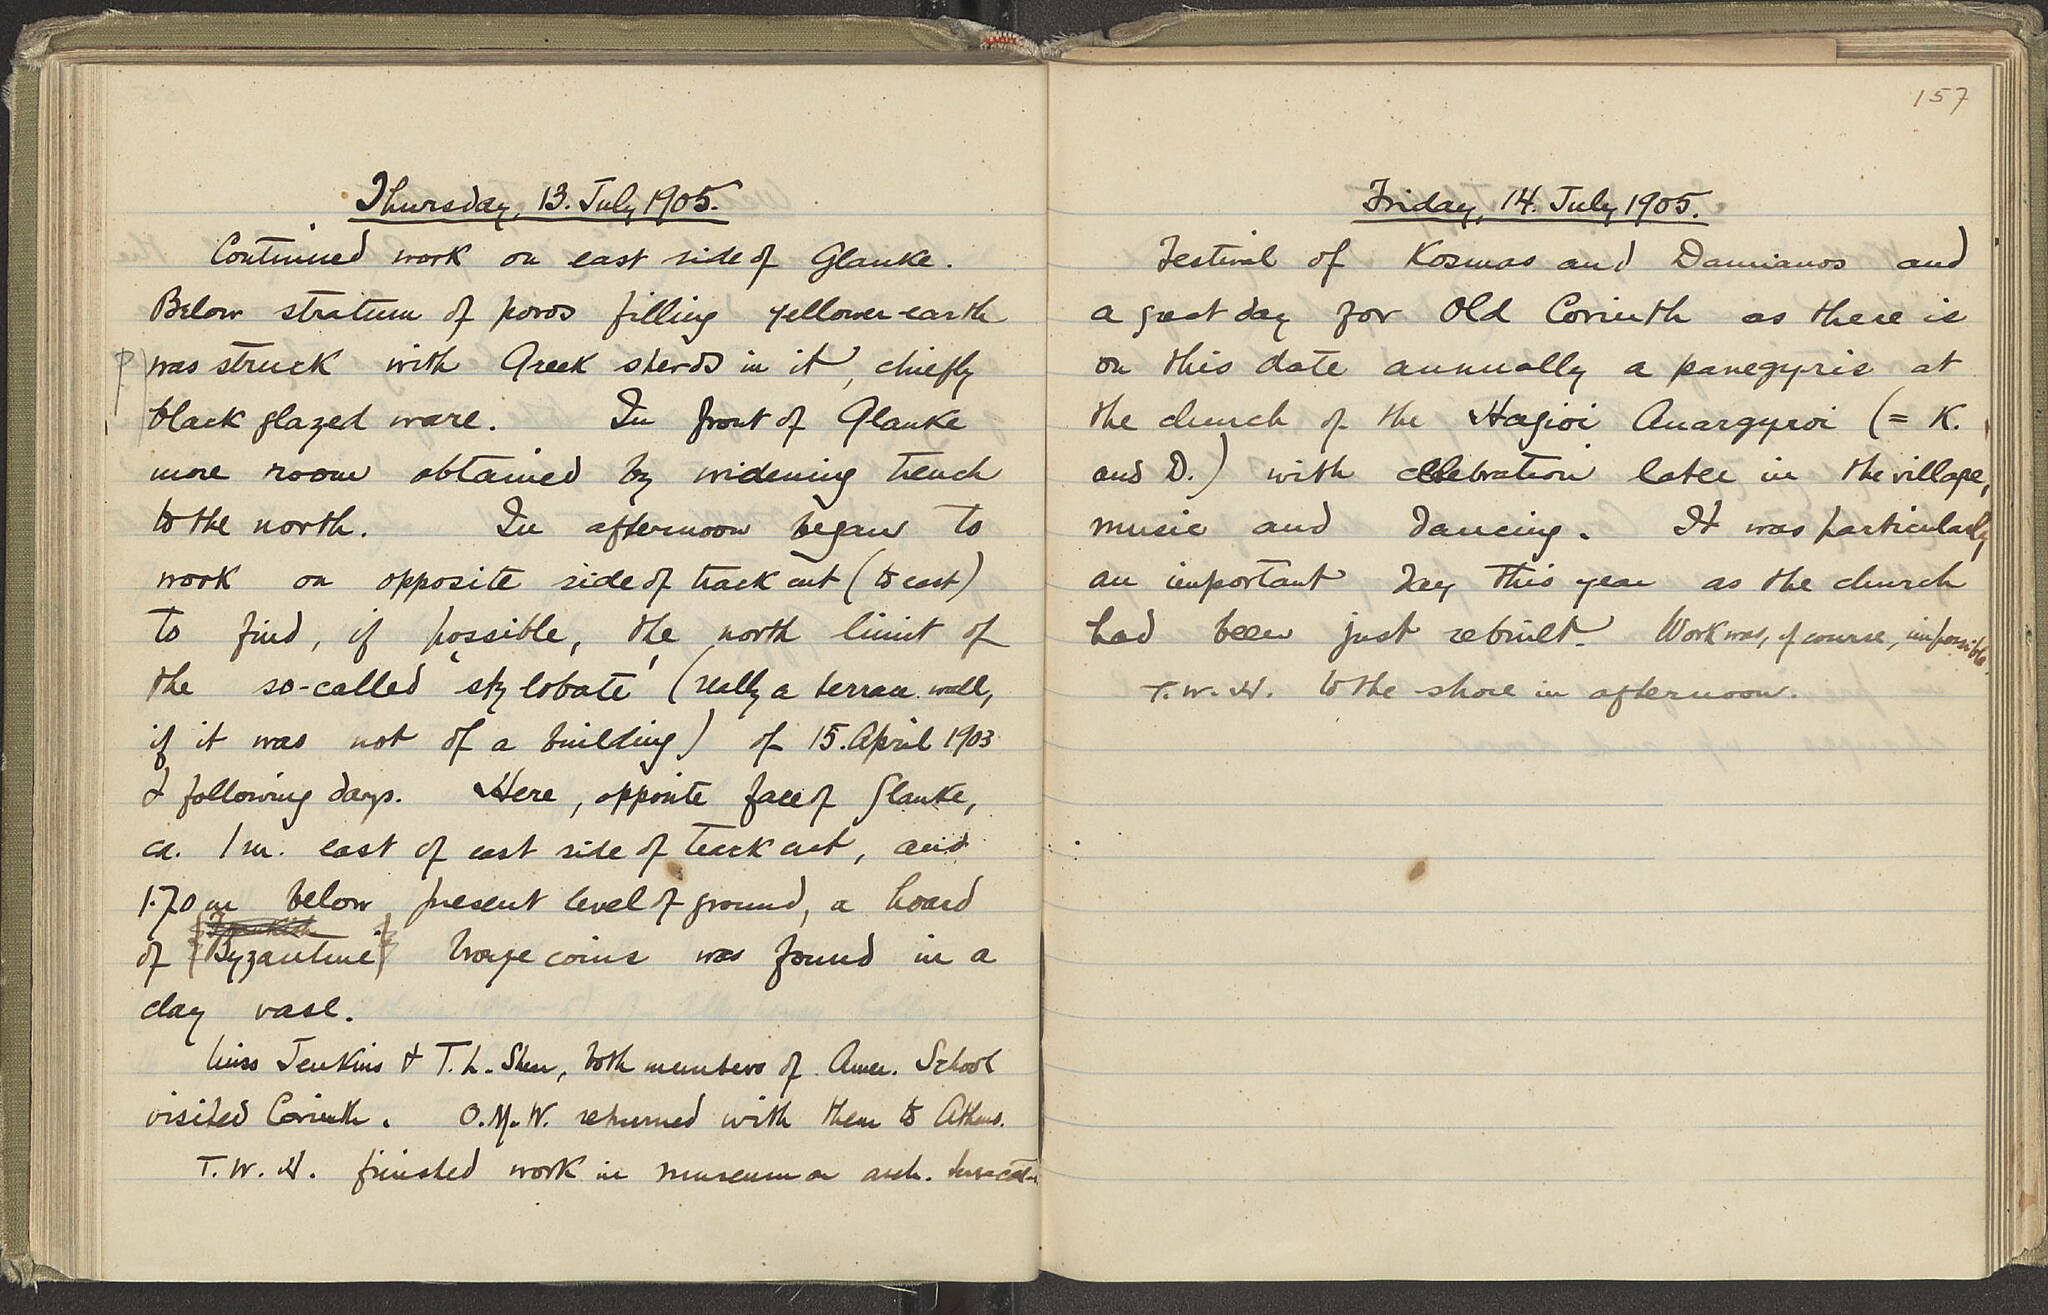 Thursday, 13. July 1905.
Continued work on east side of Glauke.
Below stratum of poros filling yellower earth
was struck with Greek sherds in it, chiefly
black glazed ware. In front of Glauke
more room obtained by widening trench
to the north. In afternoon began to
work on opposite side of track cut (to east)
to find, if possible, the north limit of
the so-called 'stylobate' (really a terrace wall,
if it was not of a building) of 15. April 1903
& following days. Here, opposite face of Glauke,
ca. 1 m. east of east side of track cut, and
1.70 m below present level of ground, a hoard
Frankish
of [Byzantine] bronze coins was found in a
clay vase.
Miss Jenkins & T. L. Shear, both members of Amer. School
visited Corinth. O.M.W. returned with them to Athens.
T. W. H. finished work in museum on arch. terracottas
157
Friday, 14. July 1905.
Festival of Kosmas and Damianos and
a great day for Old Corinth as there is
on this date annually a panegyris at
the church of the Hagioi Anargyroi (= K.
and D.) with celebration later in the village,
music and dancing. It was particularly
an important day this year as the church
had been just rebuilt. Work was, of course, impossible.
T. W. H. to the shore in afternoon.